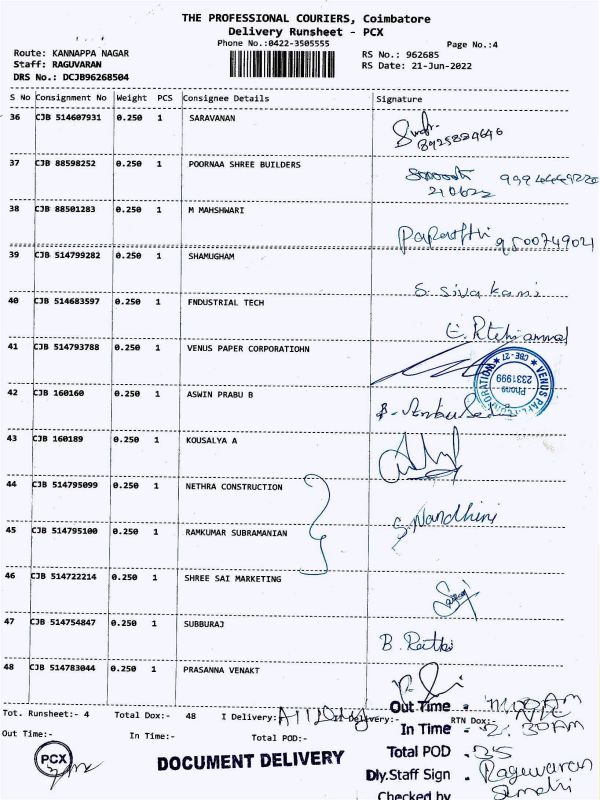 THE PROFESSIONAL COURIERS, Coimbatore
Delivery Runsheet - PCX
Phone No.:0422-3505555
Page No.:4
Route: KANNAPPA NAGAR
Staff: RAGUVARAN
DRS No.: DCJB96268504
RS No.: 962685
RS Date: 21-Jun-2022
S No Consignment No Weight PCS Consignee Details Signature
36 CJB 514607931 0.250 1 SARAVANAN
8925884646
37 CJB 88598252 0.250 1 POORNAA SHREE BUILDERS
210622
38 CJB 88501283 0.250 1 M MAHSHWARI
9500749021
39 CJB 514799282 0.250 1 SHAMUGHAM
S. Sivakami
40 CJB 514683597 0.250 1 FNDUSTRIAL TECH
41 CJB 514793788 0.250 1 VENUS PAPER CORPORATIOHN
CBE-27
Phone
2331999
42 CJB 160160 0.250 1 ASWIN PRABU B
43 CJB 160189 0.250 1 KOUSALYA A
44 CJB 514795099 0.250 1 NETHRA CONSTRUCTION
S. Nandhini
45 CJB 514795100 0.250 1 RAMKUMAR SUBRAMANIAN
46 CJB 514722214 0.250 1 SHREE SAI MARKETING
47 CJB 514754847 0.250 1 SUBBURAJ
B. Rathi
48 CJB 514783044 0.250 1 PRASANNA VENAKT
Tot. Runsheet:- 4 Total Dox:- 48 I Delivery: Delivery:- RTN Dox:-
Out Time:- In Time:- Total POD:-
Out Time - 11.00 AM
In Time - 2.30AM
Total POD - 25
Dly.Staff Sign - Raguwaran
Checked by
PCX
DOCUMENT DELIVERY